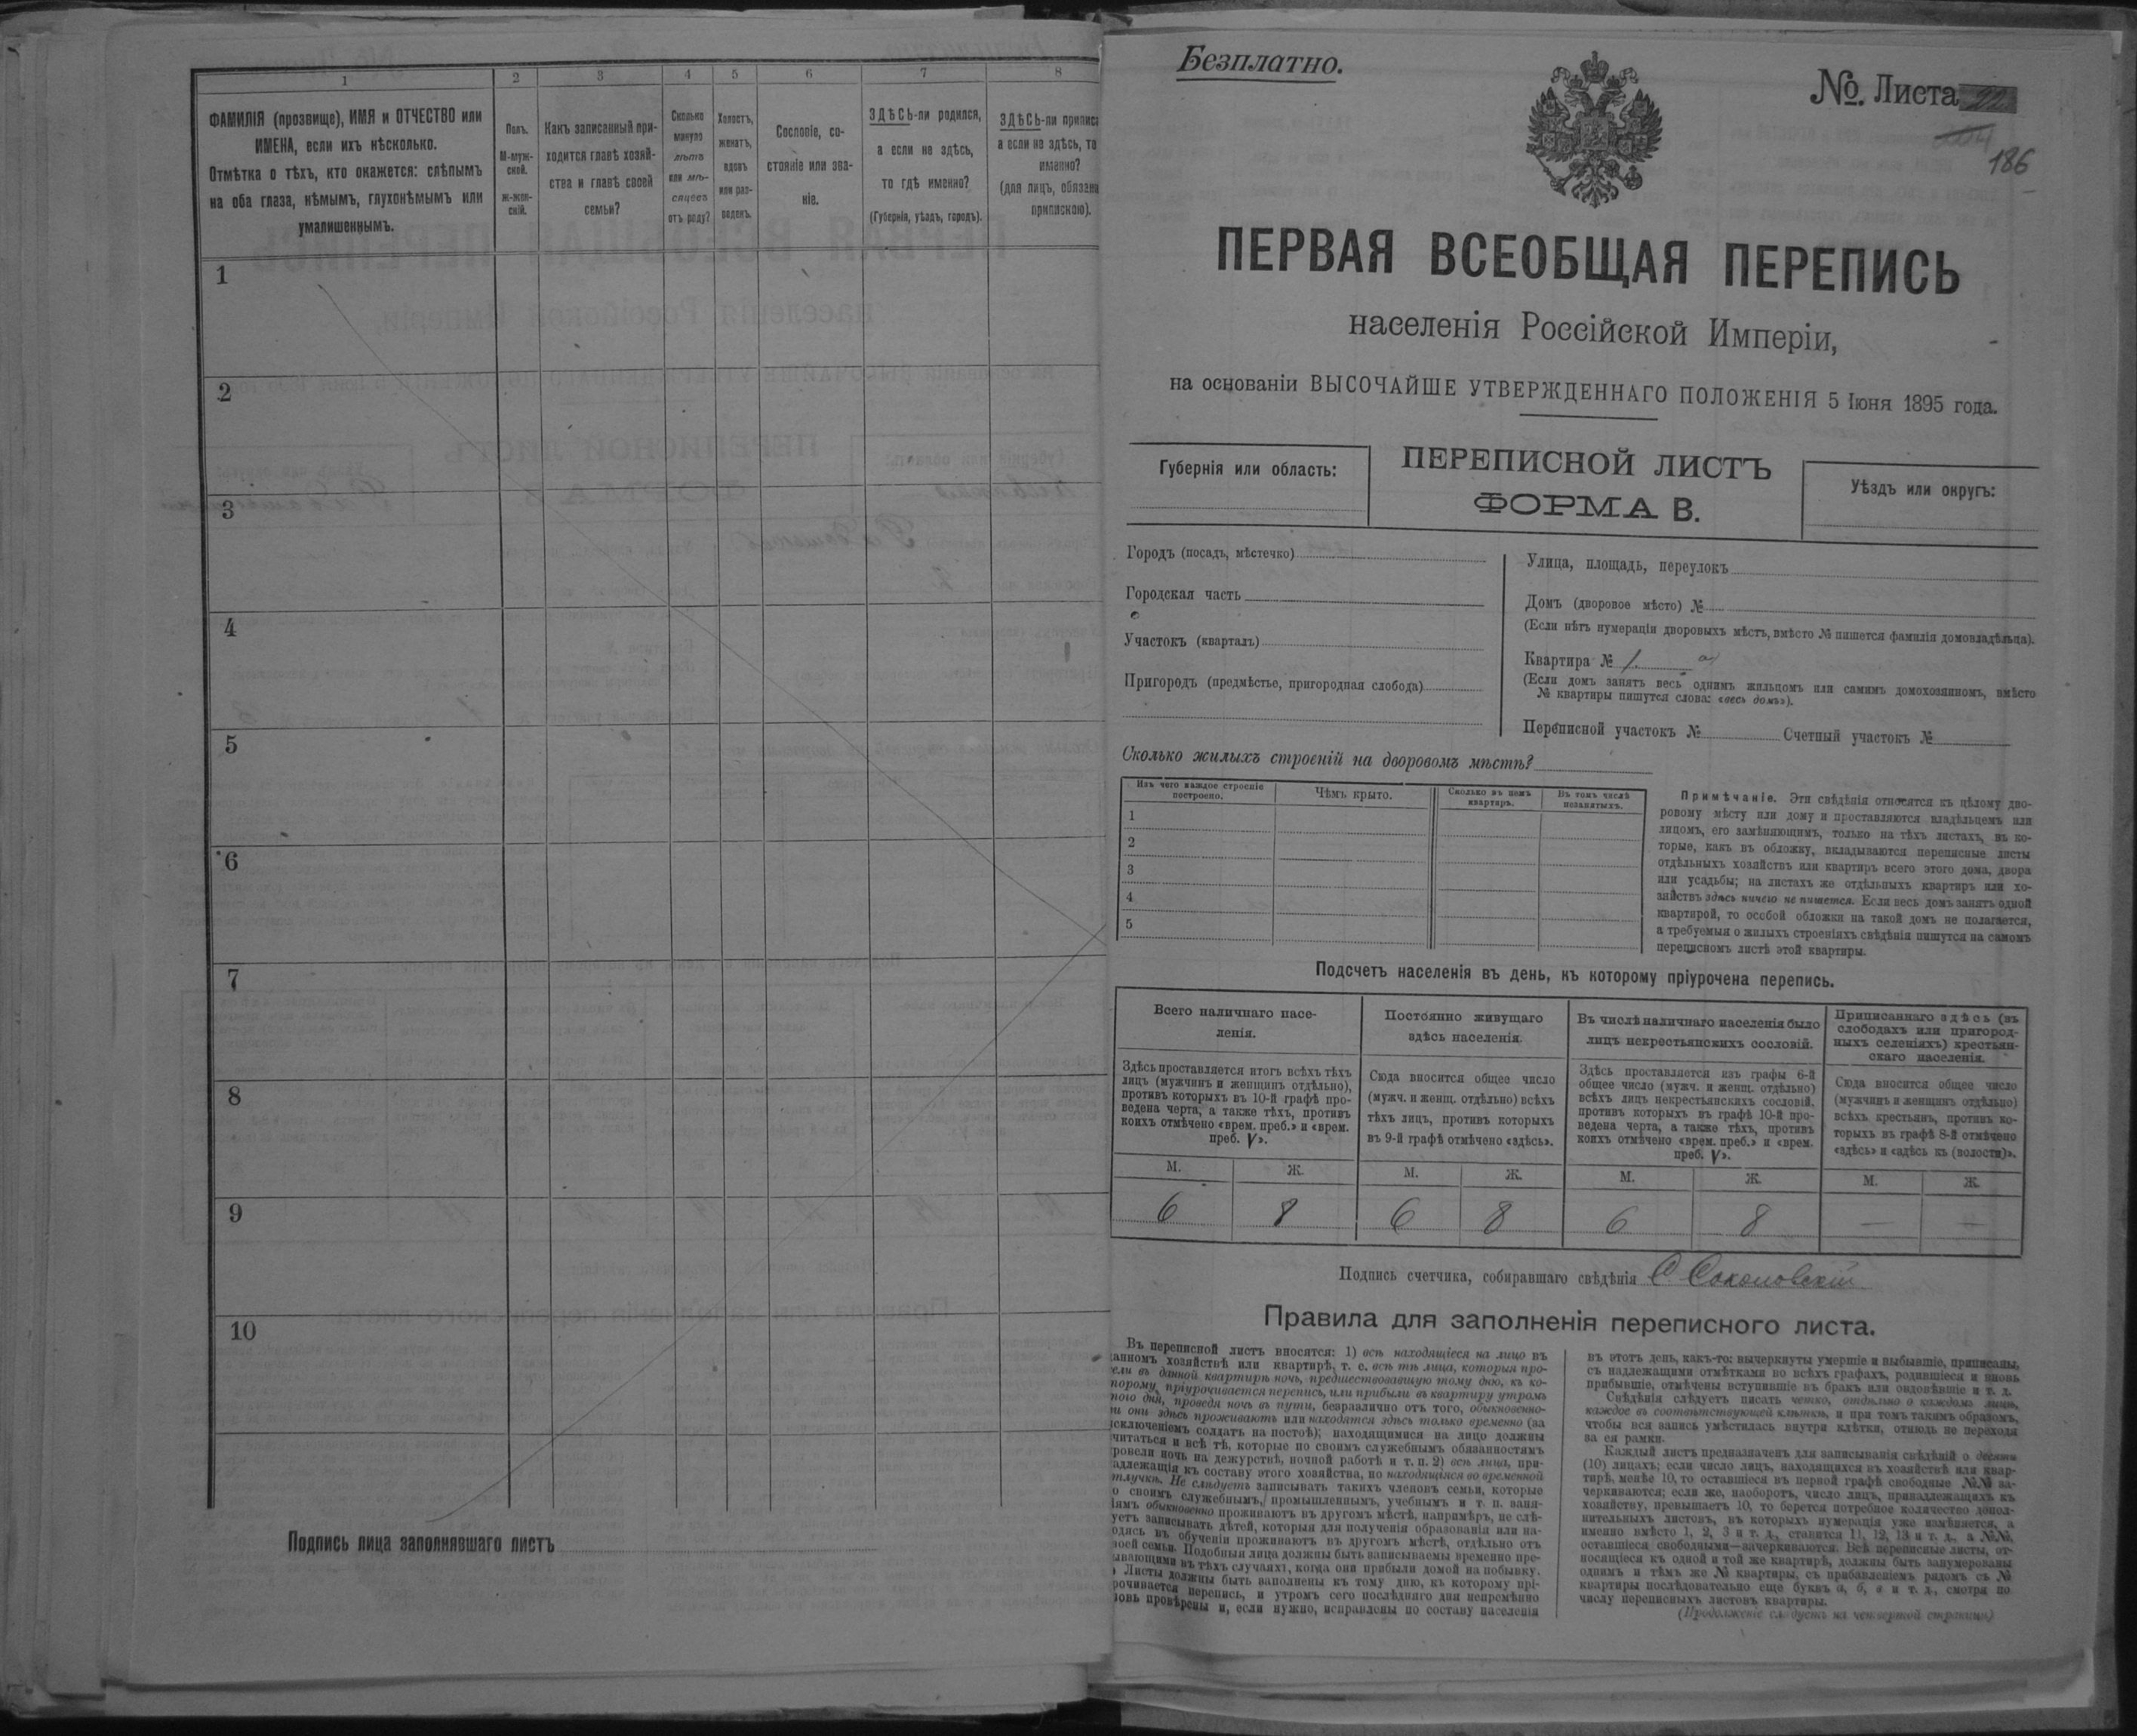 1 2 3 4 5 6 7 8
ФАМИЛІЯ (прозвище), ИМЯ и ОТЧЕСТВО или
ИМЕНА, если ихъ нѣсколько.
Отмѣтка о тѣхъ, кто окажется: слѣпымъ
на оба глаза, нѣмымъ, глухонѣмымъ или
умалишеннымъ.
Полъ.
М-муж-
ской.
ж-жен-
скій.
Какъ записанный при-
ходится главѣ хозяй-
ства и главѣ своей
семьи?
Сколько
минуло
лѣтъ
или мѣ-
сяцевъ
отъ роду?
Холостъ,
женатъ,
вдовъ
или раз-
веденъ.
Сословіе, со-
стояніе или зва-
ніе.
ЗДѢСЬ-ли родился,
а если не здѣсь,
то гдѣ именно?
(Губернія, уѣздъ, городъ).
ЗДѢСЬ-ли приписа
а если не здѣсь, то
именно?
(для лицъ, обязан
припискою).
1
2
3
4
5
6
7
8
9
10
Подпись лица заполнявшаго листъ
Безплатно.
№. Листа 22
186
ПЕРВАЯ ВСЕОБЩАЯ ПЕРЕПИСЬ
населенія Россійской Имперіи,
на основаніи ВЫСОЧАЙШЕ УТВЕРЖДЕННАГО ПОЛОЖЕНІЯ 5 Іюня 1895 года.
Губернія или область:
ПЕРЕПИСНОЙ ЛИСТЪ
ФОРМА В.
Уѣздъ или округъ:
Городъ (посадъ, мѣстечко)
Городская часть
Участокъ (кварталъ)
Пригородъ (предмѣстье, пригородная слобода)
Улица, площадь, переулокъ
Домъ (дворовое мѣсто) №
(Если нѣтъ нумераціи дворовыхъ мѣстъ, вмѣсто № пишется фамилія домовладѣльца).
Квартира № 1. а
(Если домъ занятъ весь однимъ жильцомъ или самимъ домохозяиномъ, вмѣсто
№ квартиры пишутся слова: «весь домъ»).
Переписной участокъ № Счетный участокъ №
Сколько жилыхъ строеній на дворовомъ мѣстѣ?
Изъ чего каждое строеніе
построено.
Чѣмъ крыто.
Сколько въ немъ
квартиръ.
Въ томъ числѣ
незанятыхъ.
1
2
3
4
5
Примѣчаніе. Эти свѣдѣнія относятся къ цѣлому дво-
ровому мѣсту или дому и проставляются владѣльцемъ или
лицомъ, его замѣняющимъ, только на тѣхъ листахъ, въ ко-
торые, какъ въ обложку, вкладываются переписные листы
отдѣльныхъ хозяйствъ или квартиръ всего этого дома, двора
или усадьбы; на листахъ же отдѣльныхъ квартиръ или хо-
зяйствъ здѣсь ничего не пишется. Если весь домъ занятъ одной
квартирой, то особой обложки на такой домъ не полагается,
а требуемыя о жилыхъ строеніяхъ свѣдѣнія пишутся на самомъ
переписномъ листѣ этой квартиры.
Подсчетъ населенія въ день, къ которому пріурочена перепись.
Всего наличнаго насе-
ленія.
Здѣсь проставляется итогъ всѣхъ тѣхъ
лицъ (мужчинъ и женщинъ отдѣльно),
противъ которыхъ въ 10-й графѣ про-
ведена черта, а также тѣхъ, противъ
коихъ отмѣчено «врем. преб.» и «врем.
преб. V».
Постоянно живущаго
здѣсь населенія.
Сюда вносится общее число
(мужч. и женщ. отдѣльно) всѣхъ
тѣхъ лицъ, противъ которыхъ
въ 9-й графѣ отмѣчено «здѣсь».
Въ числѣ наличнаго населенія было
лицъ некрестьянскихъ сословій.
Здѣсь проставляется изъ графы 6-й
общее число (мужч. и женщ. отдѣльно)
всѣхъ лицъ некрестьянскихъ сословій,
противъ которыхъ въ графѣ 10-й про-
ведена черта, а также тѣхъ, противъ
коихъ отмѣчено «врем. преб.» и «врем.
преб. V».
Приписаннаго здѣсь (въ
слободахъ или пригород-
ныхъ селеніяхъ) крестьян-
скаго населенія.
Сюда вносится общее число
(мужчинъ и женщинъ отдѣльно)
всѣхъ крестьянъ, противъ ко-
торыхъ въ графѣ 8-й отмѣчено
«здѣсь» и «здѣсь къ (волости)».
М. Ж. М. Ж. М. Ж. М. Ж.
6 8 6 8 6 8 — —
Подпись счетчика, собиравшаго свѣдѣнія С. Соколовскій
Правила для заполненія переписного листа.
Въ переписной листъ вносятся: 1) всѣ находящіеся на лицо въ
анномъ хозяйствѣ или квартирѣ, т. е. всѣ тѣ лица, которыя про-
ели въ данной квартирѣ ночь, предшествовавшую тому дню, къ ко-
торому пріурочивается перепись, или прибыли въ квартиру утромъ
того дня, проведя ночь въ пути, безразлично отъ того, обыкновенно-
ли они здѣсь проживаютъ или находятся здѣсь только временно (за
сключеніемъ солдатъ на постоѣ); находящимися на лицо должны
читаться и всѣ тѣ, которые по своимъ служебнымъ обязанностямъ
ровели ночь на дежурствѣ, ночной работѣ и т. п. 2) всѣ лица, при-
адлежащія къ составу этого хозяйства, но находящіяся во временной
тлучкѣ. Не слѣдуетъ записывать такихъ членовъ семьи, которые
о своимъ служебнымъ, промышленнымъ, учебнымъ и т. п. заня-
іямъ обыкновенно проживаютъ въ другомъ мѣстѣ, напримѣръ, не слѣ-
уетъ записывать дѣтей, которыя для полученія образованія или на-
одясь въ обученіи проживаютъ въ другомъ мѣстѣ, отдѣльно отъ
воей семьи. Подобныя лица должны быть записываемы временно пре-
ывающими въ тѣхъ случаяхъ, когда они прибыли домой на побывку.
Листы должны быть заполнены къ тому дню, къ которому прі-
рочивается перепись, и утромъ сего послѣдняго дня непремѣнно
новь провѣрены и, если нужно, исправлены по составу населенія
въ этотъ день, какъ-то: вычеркнуты умершіе и выбывшіе, приписаны,
съ надлежащими отмѣтками во всѣхъ графахъ, родившіеся и вновь
прибывшіе, отмѣчены вступившіе въ бракъ или овдовѣвшіе и т. д.
Свѣдѣнія слѣдуетъ писать четко, отдѣльно о каждомъ лицѣ,
каждое въ соотвѣтствующей клѣткѣ, и при томъ такимъ образомъ,
чтобы вся запись умѣстилась внутри клѣтки, отнюдь не переходя
за ея рамки.
Каждый листъ предназначенъ для записыванія свѣдѣній о десяти
(10) лицахъ; если число лицъ, находящихся въ хозяйствѣ или квар-
тирѣ, менѣе 10, то оставшіеся въ первой графѣ свободные №№ за-
черкиваются; если же, наоборотъ, число лицъ, принадлежащихъ къ
хозяйству, превышаетъ 10, то берется потребное количество допол-
нительныхъ листовъ, въ которыхъ нумерація уже измѣняется, а
именно вмѣсто 1, 2, 3 и т. д., ставится 11, 12, 13 и т. д., а №№,
оставшіеся свободными—зачеркиваются. Всѣ переписные листы, от-
носящіеся къ одной и той же квартирѣ, должны быть занумерованы
однимъ и тѣмъ же № квартиры, съ прибавленіемъ рядомъ съ №
квартиры послѣдовательно еще буквъ а, б, в и т. д., смотря по
числу переписныхъ листовъ квартиры.
(Продолженіе слѣдуетъ на четвертой страницѣ)